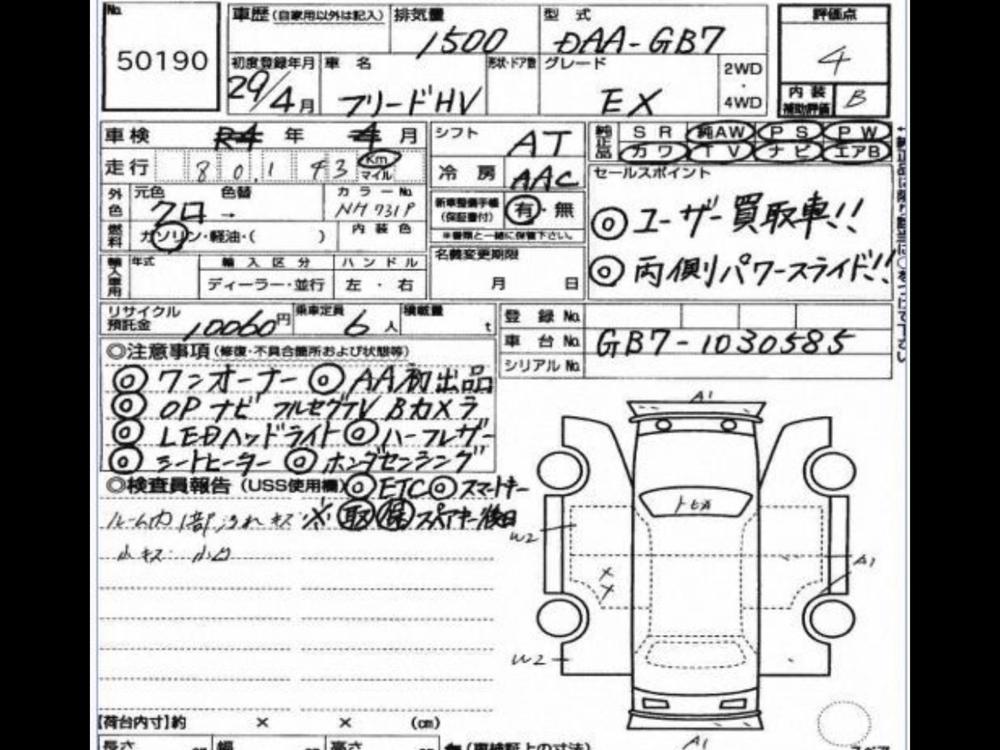 No. 50190
車歴(自家用以外は記入) 排気量 1500 型式 DAA-GB7 評価点 4
初度登録年月 29/4月 車名 フリードHV 形状・ドア数 グレード EX 2WD・4WD 内装補助評価 B
車検 R4年 4月 シフト AT 純正品 SR 純AW PS PW
走行 80,143 Km マイル 冷房 AAC カワ TV ナビ エアB
外色 元色 クロ 色替 → カラーNo. NH731P 内装色
新車整備手帳(保証書付) 有・無 ※書類と一緒に保管下さい。
セールスポイント
◎ユーザー買取車!!
◎両側パワースライド!!
燃料 ガソリン・軽油・( )
名義変更期限 月 日
輸入車用 年式 輸入区分 ディーラー・並行 ハンドル 左・右
リサイクル預託金 10060円 乗車定員 6人 積載量 t
登録No.
車台No. GB7-1030585
シリアルNo.
◎注意事項(修復・不具合箇所および状態等)
◎ワンオーナー ◎AA初出品
◎OPナビ フルセグTV Bカメラ
◎LEDヘッドライト ◎ハーフレザー
◎シートヒーター ◎ホンダセンシング
◎検査員報告(USS使用欄) ◎ETC ◎スマートキー
ルーム内 1部 汚れ キズ ※取 保 スペアキー後日
小キズ 小凹
A1
トビ石
W2
A1
XX
W2
A1
【荷台内寸】約 × × (cm)
長さ 幅 高さ (車検証上の寸法)